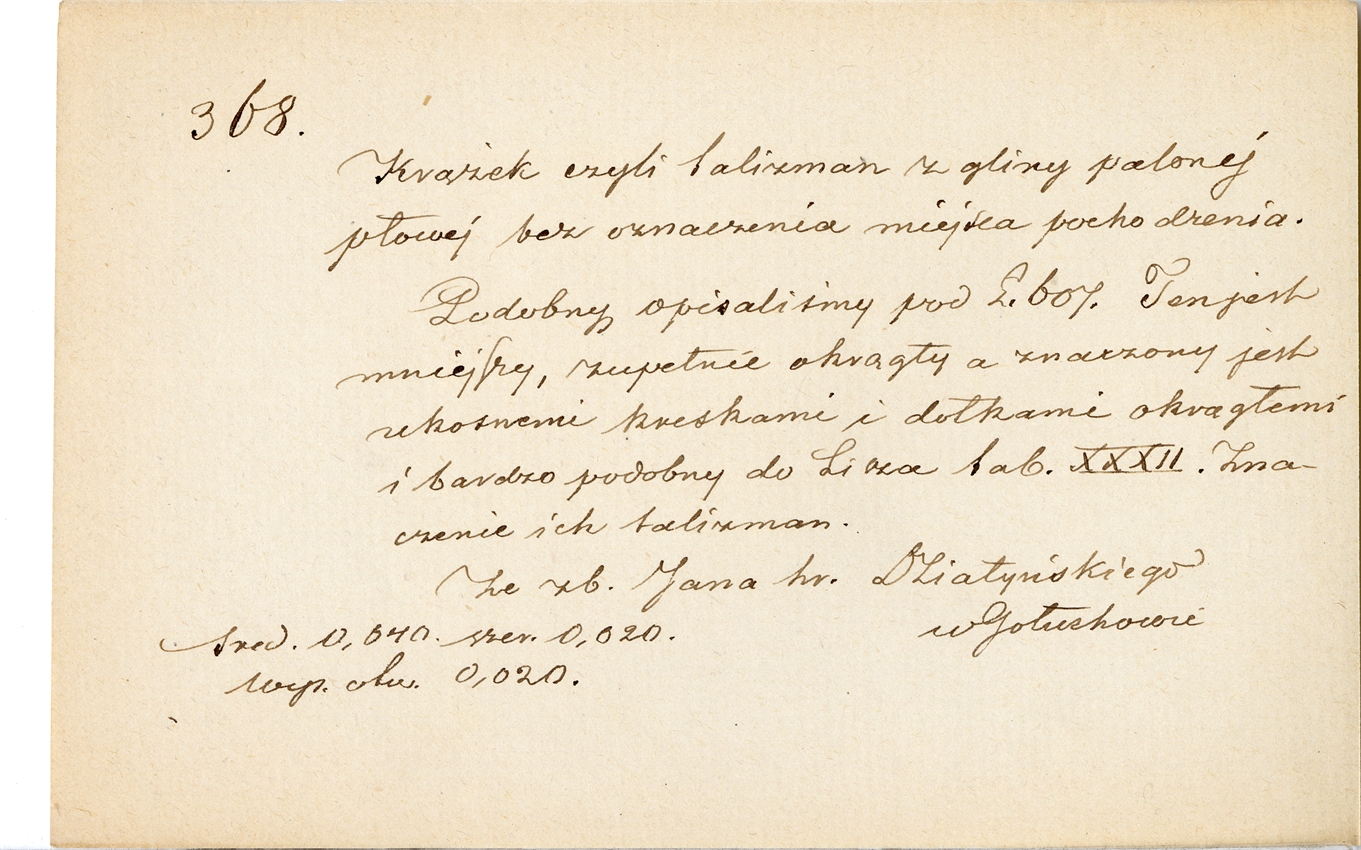 368.
Krążek czyli talizman z gliny palonéj
płowéj bez oznaczenia miejsca pochodzenia.
Podobny opisaliśmy pod L. 607. Ten jest
mniejszy, zupełnie okrągły a znaczony jest
ukosnemi kreskami i dołkami okrągłemi
i bardzo podobny do Lisza tab. XXXII. Zna-
czenie ich talizman.
Ze zb. Jana hr. Działyńskiego
w Gołuchowie
Śred. 0,040. szer. 0,020.
Wyp. otw. 0,020.